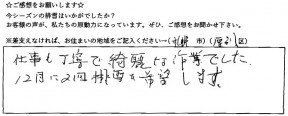 ☆ご感想をお願いします☆
今シーズンの排雪はいかがでしたか？
お客様の声が、私たちの原動力になっています。ぜひ、ご感想をお聞かせ下さい。
※差支えなければ、お住まいの地域をご記入ください→(札幌 市)(厚別区)
仕事も丁寧で綺麗な作業でした。
12月に2回排雪を希望します。